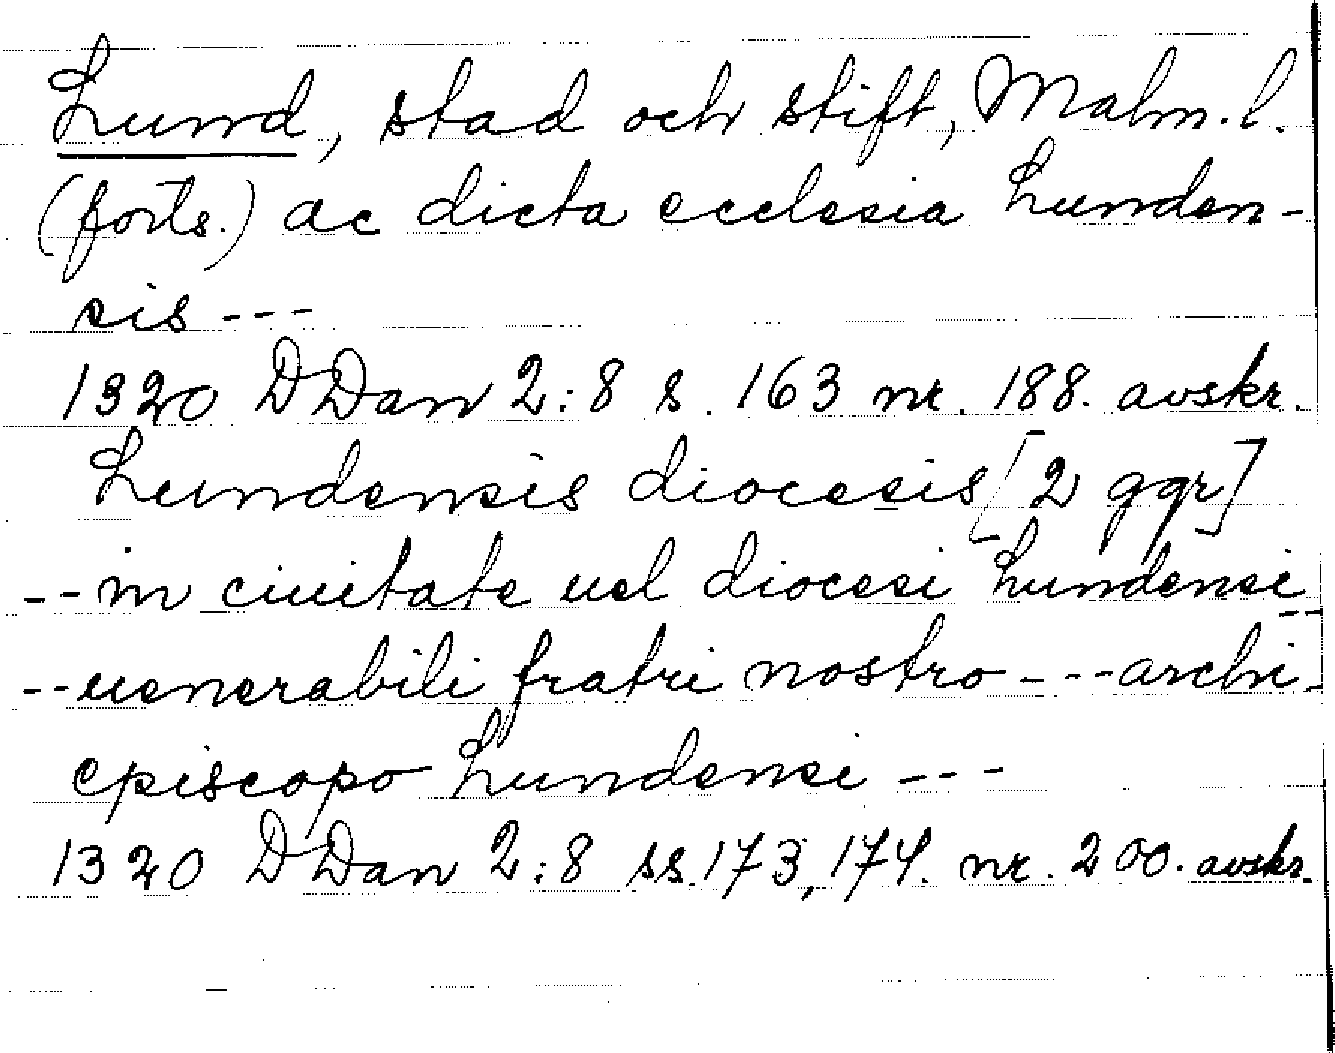 Lund, stad och stift, Malm. l.
(forts.) ac dicta ecclesia Lunden-
sis ---
1320 DDan 2:8 s. 163 nr. 188. avskr.
Lundensis diocesis [2 ggr]
--in ciuitate uel diocesi Lundensi --
--uenerabili fratri nostro ---archi-
episcopo Lundensi ---
1320 DDan 2:8 ss. 173, 174. nr. 200. avskr.